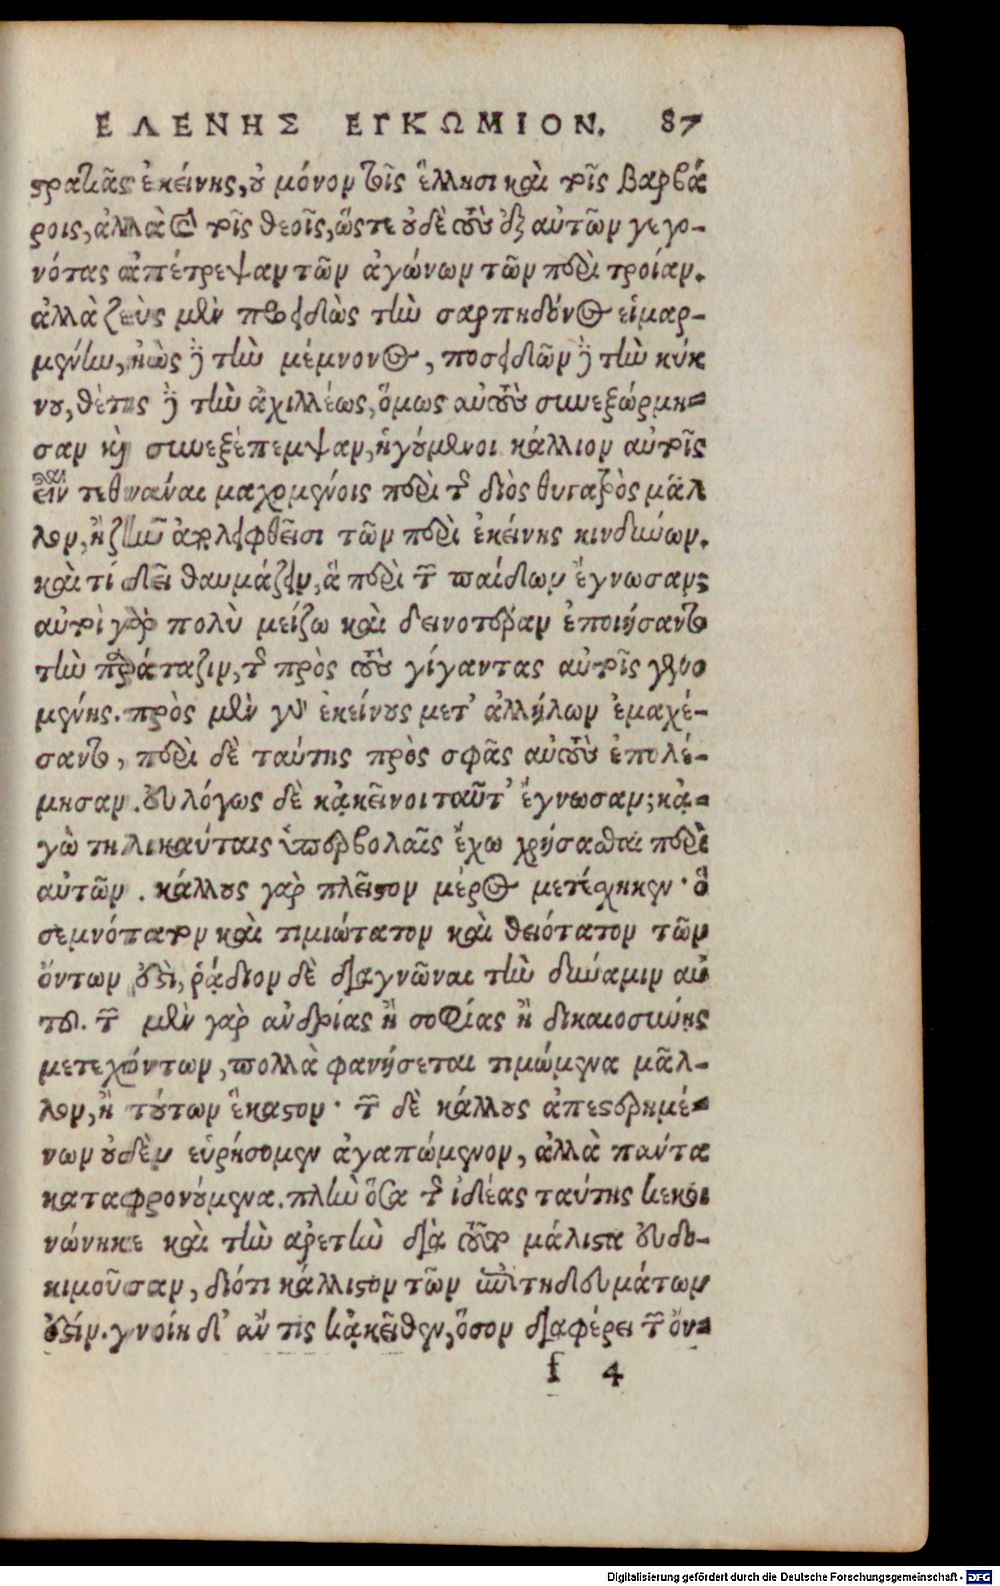 ΕΛΕΝΗΣ ΕΓΚΩΜΙΟΝ. 87
στρατιᾶς ἐκείνης, οὐ μόνον τοῖς ἕλλησι καὶ τοῖς βαρβά
ροις, ἀλλὰ καὶ τοῖς θεοῖς, ὥστε οὐδὲ τοὺς ἐξ αὐτῶν γεγο-
νότας ἀπέτρεψαν τῶν ἀγώνων τῶν περὶ τροίαν.
ἀλλὰ ζεὺς μὲν προειδὼς τὴν σαρπηδόνος εἱμαρ-
μένην, ἠὼς δὲ τὴν μέμνονος, ποσειδῶν δὲ τὴν κύκ
νου, θέτις δὲ τὴν ἀχιλλέως, ὅμως αὐτοὺς συνεξώρμη-
σαν καὶ συνεξέπεμψαν, ἡγούμενοι κάλλιον αὐτοῖς
εἶναι τεθνάναι μαχομένοις περὶ τῆς διὸς θυγατρὸς μᾶλ
λον, ἢ ζῆν ἀπολειφθεῖσι τῶν περὶ ἐκείνης κινδύνων.
καὶ τί δεῖ θαυμάζειν, ἃ περὶ τῶν παίδων ἔγνωσαν;
αὐτοὶ γὰρ πολὺ μείζω καὶ δεινοτέραν ἐποιήσαντο
τὴν παράταξιν, τῆς πρὸς τοὺς γίγαντας αὐτοῖς γενο
μένης. πρὸς μὲν γὰρ ἐκείνους μετ' ἀλλήλων ἐμαχέ-
σαντο, περὶ δὲ ταύτης πρὸς σφᾶς αὐτοὺς ἐπολέ-
μησαν. εὐλόγως δὲ κἀκεῖνοι ταῦτ' ἔγνωσαν; κἀ-
γὼ τηλικαύταις ὑπερβολαῖς ἔχω χρήσασθαι περὶ
αὐτῶν. κάλλους γὰρ πλεῖστον μέρος μετέσχηκεν· ὃ
σεμνότατον καὶ τιμιώτατον καὶ θειότατον τῶν
ὄντων ἐστὶ, ῥᾴδιον δὲ διαγνῶναι τὴν δύναμιν αὐ
τοῦ. τῶν μὲν γὰρ ἀνδρίας ἢ σοφίας ἢ δικαιοσύνης
μετεχόντων, πολλὰ φανήσεται τιμώμενα μᾶλ-
λον, ἢ τούτων ἕκαστον· τῶν δὲ κάλλους ἀπεστερημέ-
νων οὐδὲν εὑρήσομεν ἀγαπώμενον, ἀλλὰ πάντα
καταφρονούμενα. πλὴν ὅσα τῆς ἰδέας ταύτης κεκοι
νώνηκε καὶ τὴν ἀρετὴν διὰ τοῦτο μάλιστα εὐδο-
κιμοῦσαν, διότι κάλλιστον τῶν ἐπιτηδευμάτων
ἐστίν. γνοίη δ' ἄν τις κἀκεῖθεν, ὅσον διαφέρει τῶν ὄν-
f 4
Digitalisierung gefördert durch die Deutsche Forschungsgemeinschaft - DFG